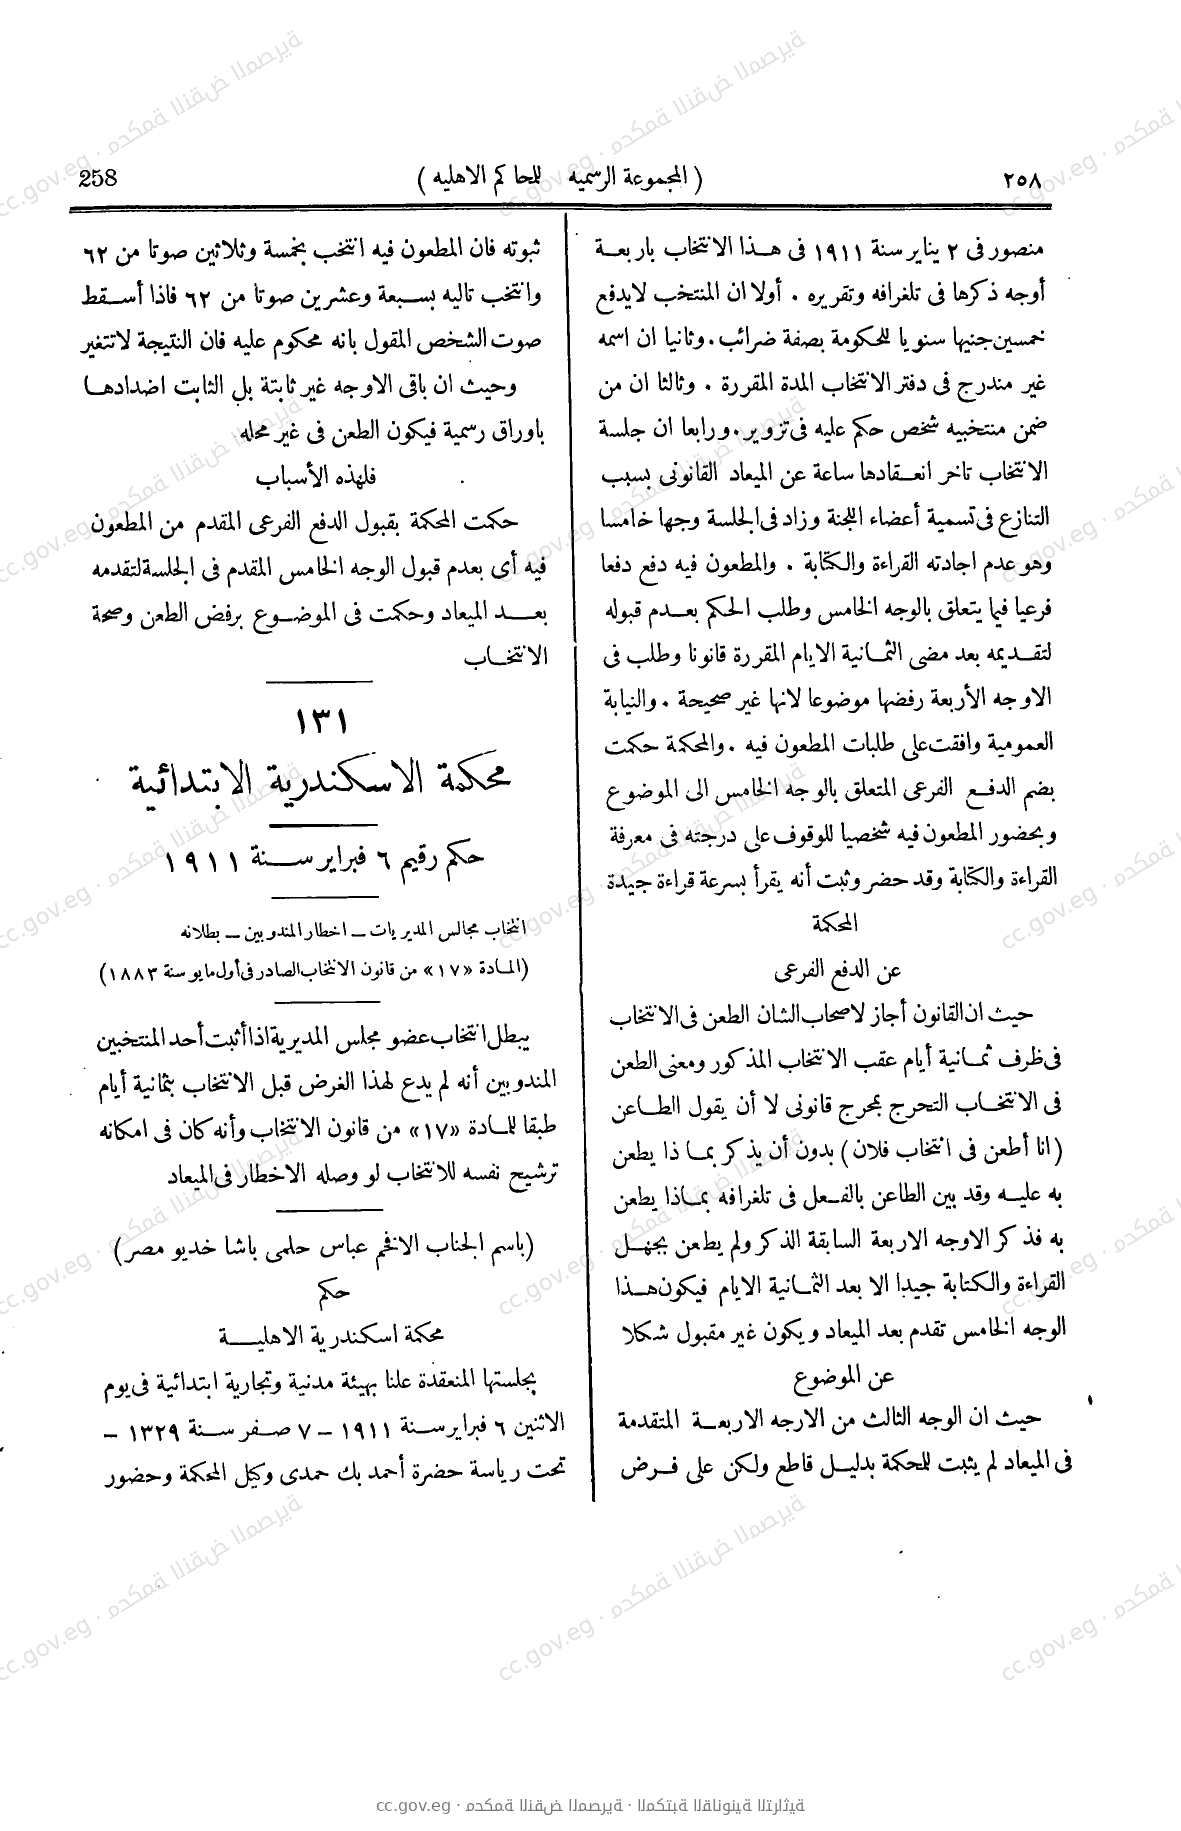 ٢٥٨
( المجموعة الرسميه للمحاكم الاهليه )
258
منصور فى ٢ يناير سنة ١٩١١ فى هـذا الانتخاب باربعـة
أوجه ذكرها فى تلغرافه وتقريره . أولا ان المنتخب لايدفع
خمسين جنيها سنويا للحكومة بصفة ضرائب . وثانيا ان اسمه
غير مندرج فى دفتر الانتخاب المدة المقررة . وثالثا ان من
ضمن منتخبيه شخص حكم عليه فى تزوير . ورابعا ان جلسة
الانتخاب تاخر انعـقادها ساعة عن الميعاد القانونى بسبب
التنازع فى تسمية أعضاء اللجنة وزاد فى الجلسة وجها خامسا
وهو عدم اجادته القراءة والكتابة . والمطعون فيه دفع دفعا
فرعيا فيما يتعلق بالوجه الخامس وطلب الحكم بعـدم قبوله
لتقـديمه بعد مضى الثمـانية الايام المقررة قانونا وطلب فى
الاوجه الأربعة رفضها موضوعا لانها غير صحيحة . والنيابة
العمومية وافقت على طلبات المطعون فيه . والمحكمة حكمت
بضم الدفـع الفرعى المتعلق بالوجه الخامس الى الموضوع
وبحضور المطعون فيه شخصيا للوقوف على درجته فى معرفة
القراءة والكتابة وقد حضر وثبت أنه يقرأ بسرعة قراءة جيدة
المحكمة
عن الدفع الفرعى
حيث ان القانون أجاز لاصحاب الشان الطعن فى الانتخاب
فى ظرف ثمـانية أيام عقب الانتخاب المذكور ومعنى الطعن
فى الانتخـاب التحرج بمحرج قانونى لا أن يقول الطـاعن
(انا أطعن فى انتخاب فلان) بدون أن يذكر بمـا ذا يطعن
به عليـه وقد بين الطاعن بالفـعل فى تلغرافه بمـاذا يطعن
به فذكر الاوجه الاربعة السابقة الذكر ولم يطعن بجهـل
القراءة والكتابة جيدا الا بعد الثمـانية الايام فيكون هـذا
الوجه الخامس تقدم بعد الميعاد ويكون غير مقبول شكلا
عن الموضوع
حيث ان الوجه الثالث من الارجه الاربعـة المتقدمة
فى الميعاد لم يثبت للمحكمة بدليـل قاطع ولكن على فـرض
ثبوته فان المطعون فيه انتخب بخمسة وثلاثين صوتا من ٦٢
وانتخب تاليه بسـبعة وعشرين صوتا من ٦٢ فاذا أسـقط
صوت الشخص المقول بانه محكوم عليه فان النتيجة لا تتغير
وحيث ان باقى الاوجه غير ثابتة بل الثابت اضدادهـا
باوراق رسمية فيكون الطعن فى غير محله
فلهذه الأسباب
حكمت المحكمة بقبول الدفع الفرعى المقدم من المطعون
فيه أى بعدم قبول الوجه الخامس المقدم فى الجلسة لتقدمه
بعـد الميعاد وحكمت فى الموضـوع برفض الطعن وصحة
الانتخـاب
١٣١
محكمة الاسكندرية الابتدائية
حكم رقيم ٦ فبراير سـنة ١٩١١
انتخاب مجالس المديريات ــ اخطار المندوبين ــ بطلانه
(المـادة «١٧» من قانون الانتخاب الصادر فى أول مايو سنة ١٨٨٣)
يبطل انتخاب عضو مجلس المديرية اذا أثبت أحد المنتخبين
المندوبين أنه لم يدع لهذا الغرض قبل الانتخاب بثمانية أيام
طبقا للمـادة «١٧» من قانون الانتخاب وأنه كان فى امكانه
ترشيح نفسه للانتخاب لو وصله الاخطار فى الميعاد
(باسم الجناب الافخم عباس حلمى باشا خديو مصر)
حكم
محكمة اسكندرية الاهليـة
بجلستها المنعقدة علنا بهيئة مدنية وتجارية ابتدائية فى يوم
الاثنين ٦ فبراير سـنة ١٩١١ ــ ٧ صـفر سـنة ١٣٢٩ ــ
تحت رياسة حضرة أحمد بك حمدى وكيل المحكمة وحضور
cc.gov.eg · محكمة النقض المصرية · المكتبة القانونية التراثية